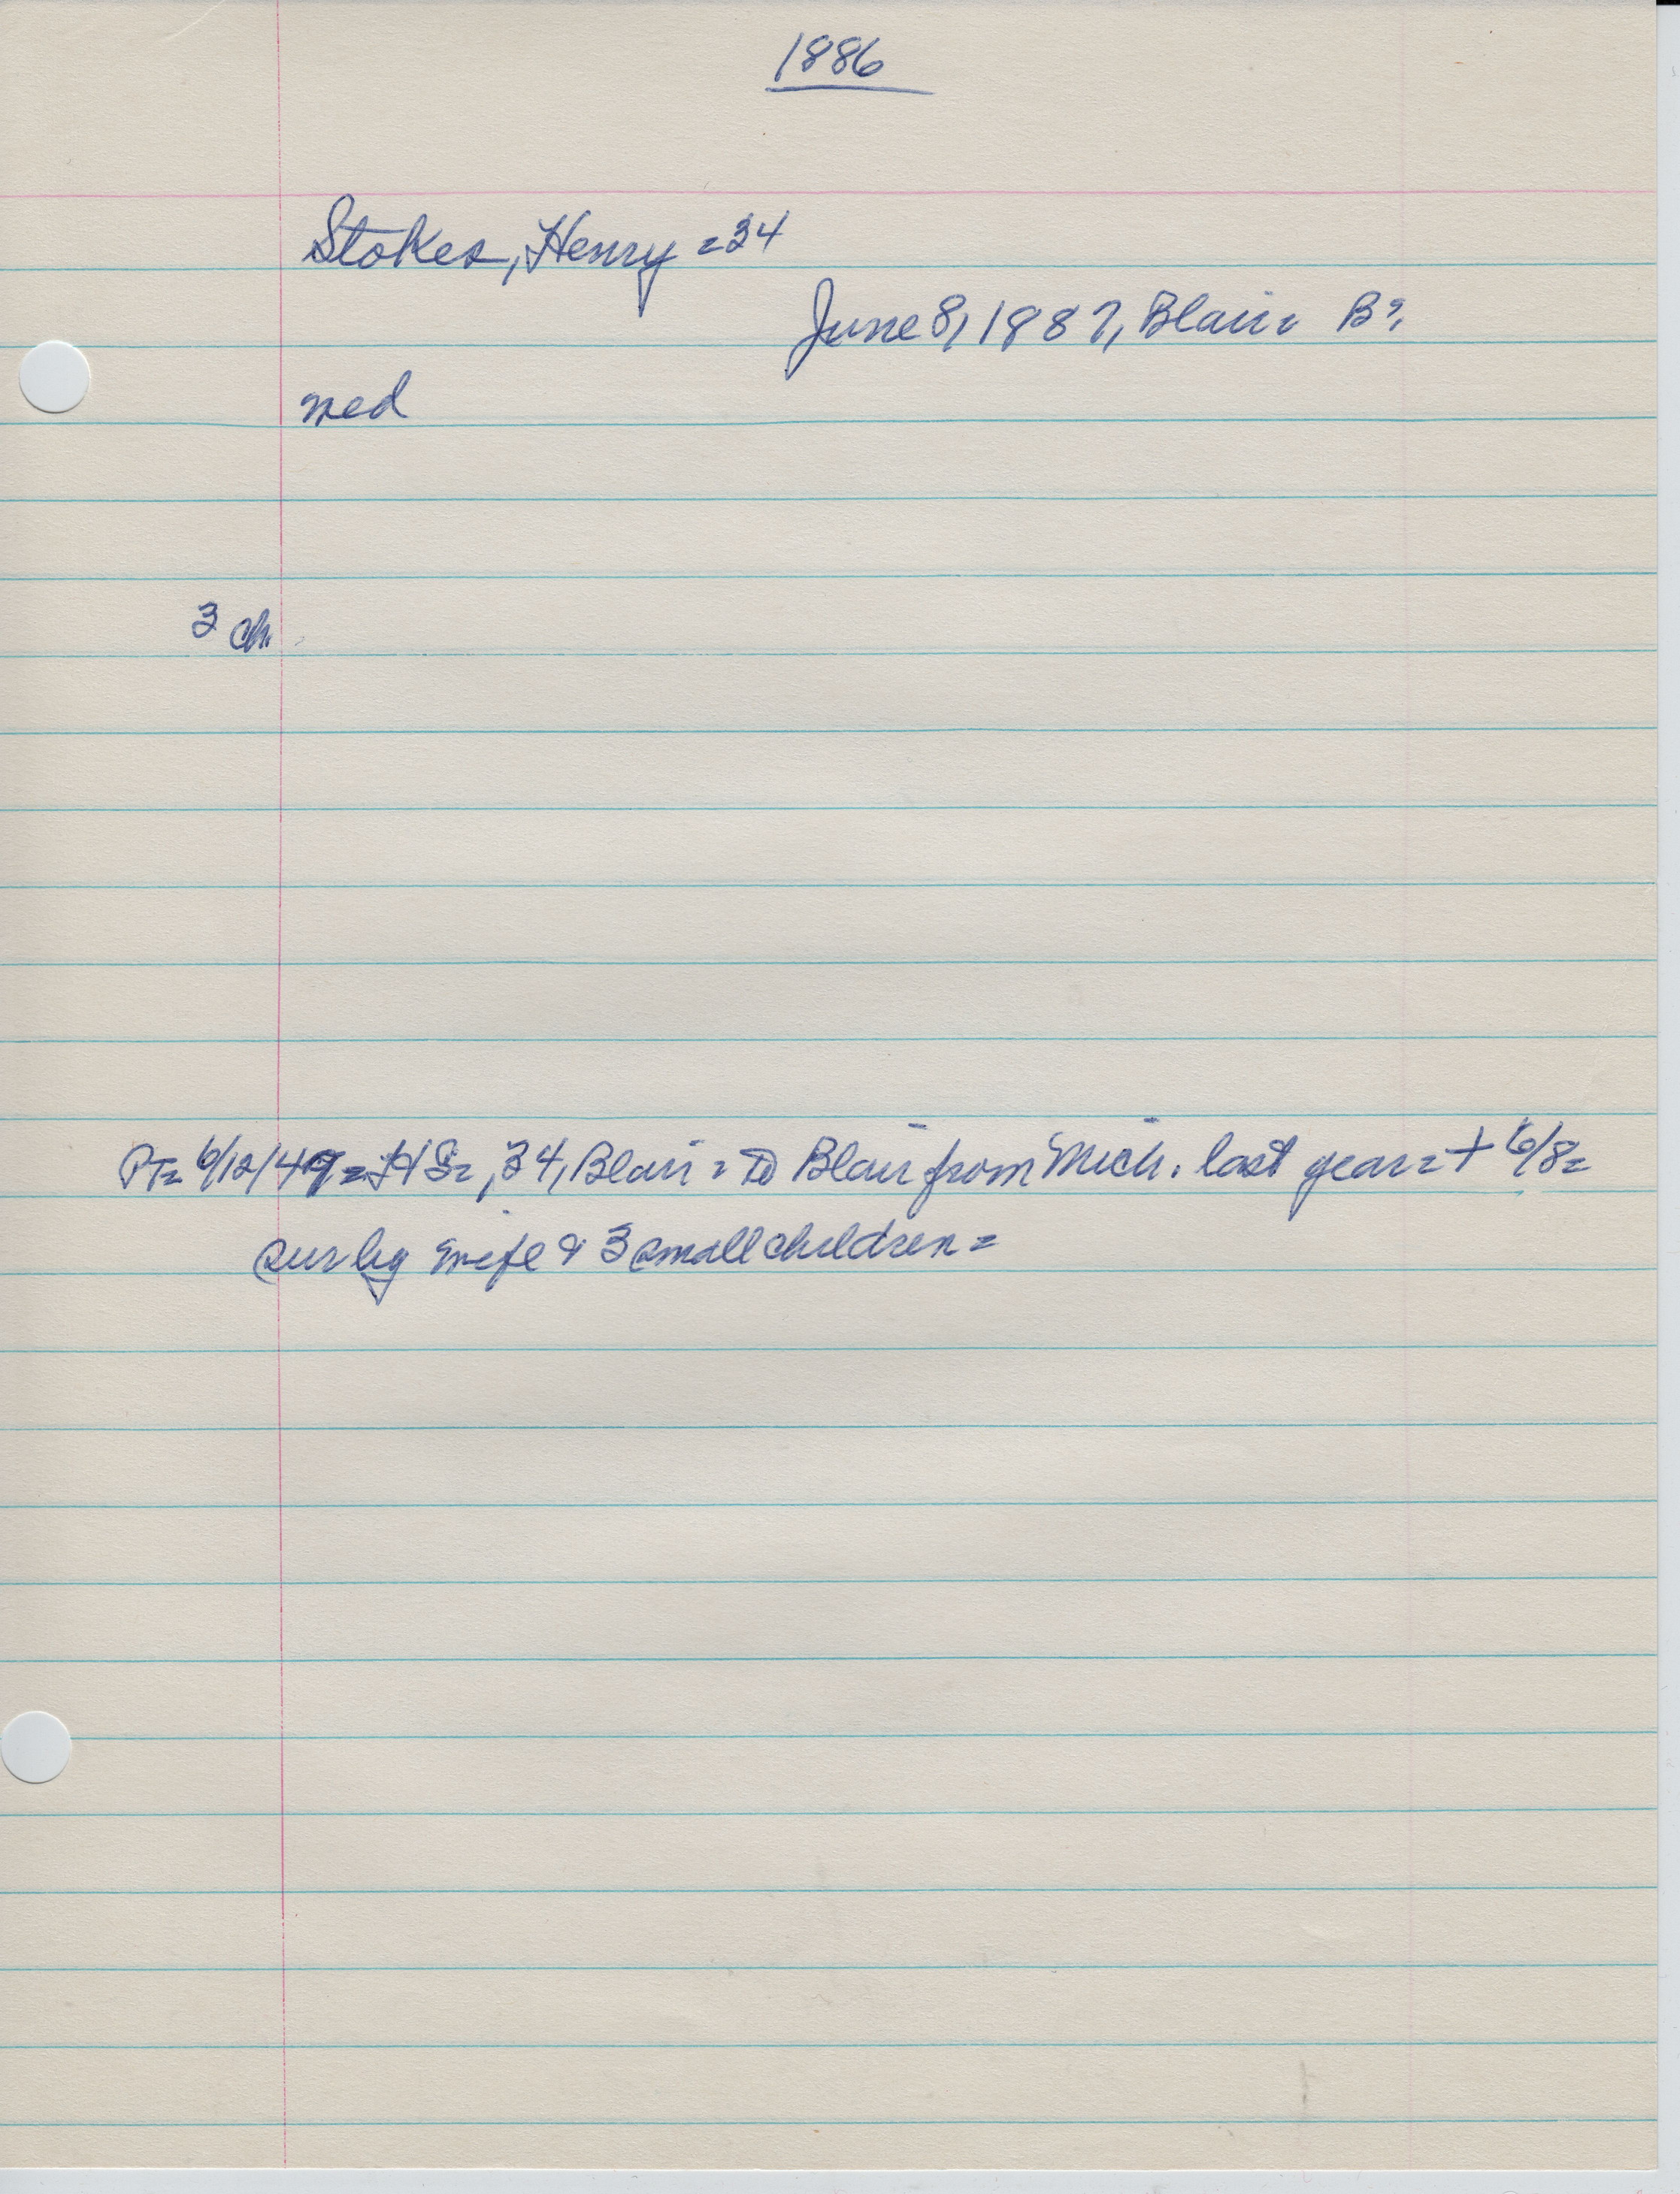 1886
Stokes, Henry = 34
June 8, 1887, Blair = B?,
med
3 ch.
PT= 6/12/ = H S=, 34, Blair = to Blair from Mich. last year = + 6/8=
sur by wife & 3 small children =